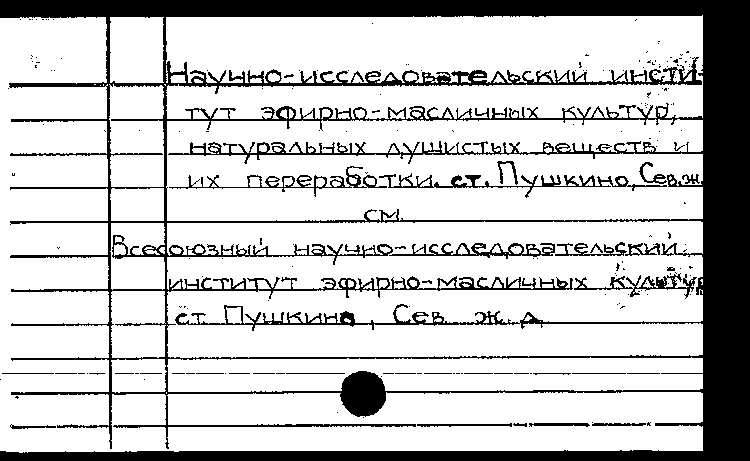 Научно-исследовательский инсти-
тут эфирно-масличных культур,
натуральных душистых веществ и
их переработки. ст. Пушкино, Сев.ж.
см.
Всесоюзный научно-исследовательский
институт эфирно-масличных культур
ст. Пушкино, Сев. ж. д.